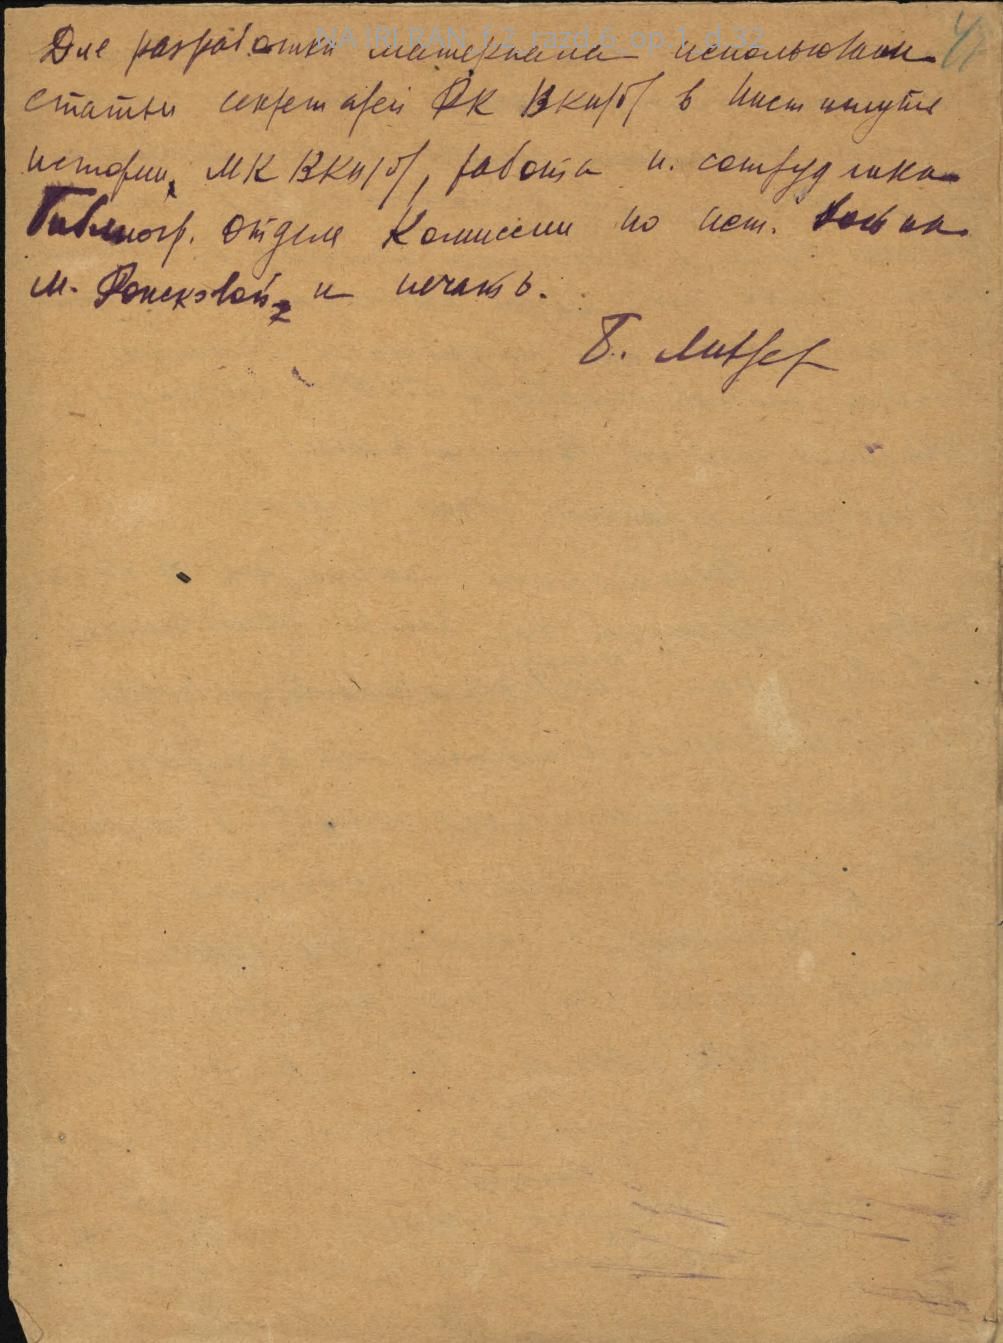 NA IRI RAN f.2 razd.6 op.1 d.32
Для разработки материала использован
статьи секретарей РК ВКП/б/ в Институте
истории, МК ВКП/б/, работа н. сотрудника
Библиогр. отдела Комиссии по ист. войны
М. и печать.
Б.